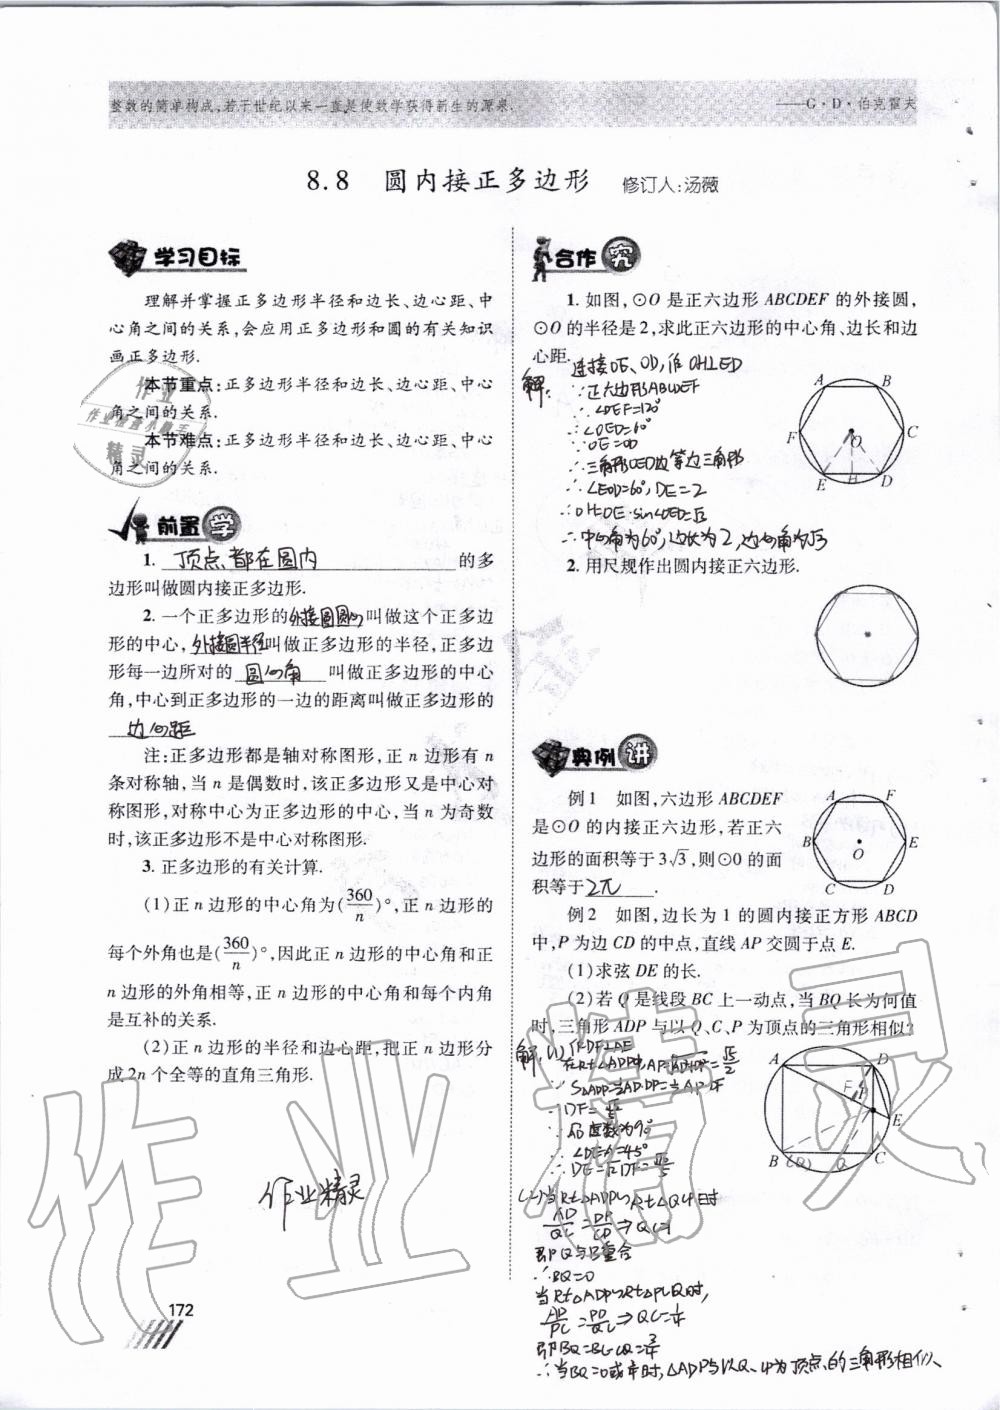 整数的简单构成,若干世纪以来一直是使数学获得新生的源泉.
——G·D·伯克霍夫
8.8 圆内接正多边形 修订人:汤薇
学习目标
理解并掌握正多边形半径和边长、边心距、中
心角之间的关系,会应用正多边形和圆的有关知识
画正多边形.
本节重点:正多边形半径和边长、边心距、中心
角之间的关系.
本节难点:正多边形半径和边长、边心距、中心
角之间的关系.
前置学
1. 顶点都在圆内 的多
边形叫做圆内接正多边形.
2. 一个正多边形的外接圆圆心叫做这个正多边
形的中心,外接圆半径叫做正多边形的半径,正多边
形每一边所对的 圆心角 叫做正多边形的中心
角,中心到正多边形的一边的距离叫做正多边形的
边心距
注:正多边形都是轴对称图形,正 n 边形有 n
条对称轴,当 n 是偶数时,该正多边形又是中心对
称图形,对称中心为正多边形的中心,当 n 为奇数
时,该正多边形不是中心对称图形.
3. 正多边形的有关计算.
(1)正 n 边形的中心角为(360/n)°,正 n 边形的
每个外角也是(360/n)°,因此正 n 边形的中心角和正
n 边形的外角相等,正 n 边形的中心角和每个内角
是互补的关系.
(2)正 n 边形的半径和边心距,把正 n 边形分
成 2n 个全等的直角三角形.
作业精灵
172
合作究
1. 如图,⊙O 是正六边形 ABCDEF 的外接圆,
⊙O 的半径是 2,求此正六边形的中心角、边长和边
心距.
解: 连接OE、OD,作OH⊥ED
∵正六边形ABCDEF
∴∠DEF=120°
∴∠OED=60°
∵OE=OD
∴三角形OED为等边三角形
∴∠EOD=60°,DE=2
∴OH=OE·sin∠OED=√3
∴中心角为60°,边长为2,边心角为√3
A B C D H E F O
2. 用尺规作出圆内接正六边形.
典例讲
例 1 如图,六边形 ABCDEF
是⊙O 的内接正六边形,若正六
边形的面积等于 3√3,则⊙0 的面
积等于 2π .
A F B E C D O
例 2 如图,边长为 1 的圆内接正方形 ABCD
中,P 为边 CD 的中点,直线 AP 交圆于点 E.
(1)求弦 DE 的长.
(2)若 Q 是线段 BC 上一动点,当 BQ 长为何值
时,三角形 ADP 与以 Q、C、P 为顶点的三角形相似?
解:(1)作DF⊥AE
在Rt△ADP中,AP=√AD²+DP²=√5/2
∵S△ADP=½AD·DP=½AP·DF
∴DF=√5/5
∴∠DEA=45°
∴DE=√2DF=√10/5
(2)当Rt△ADP∽Rt△QCP时
AD/QC=DP/CP⇒QC=1
即Q与B重合
∴BQ=0
当Rt△ADP∽Rt△PCQ时,
AD/PC=PD/QC⇒QC=¼
即BQ=BC-CQ=¾
∴当BQ=0或¾时,△ADP与以Q、C、P为顶点的三角形相似、
A D F P E B (Q) Q C
作业精灵